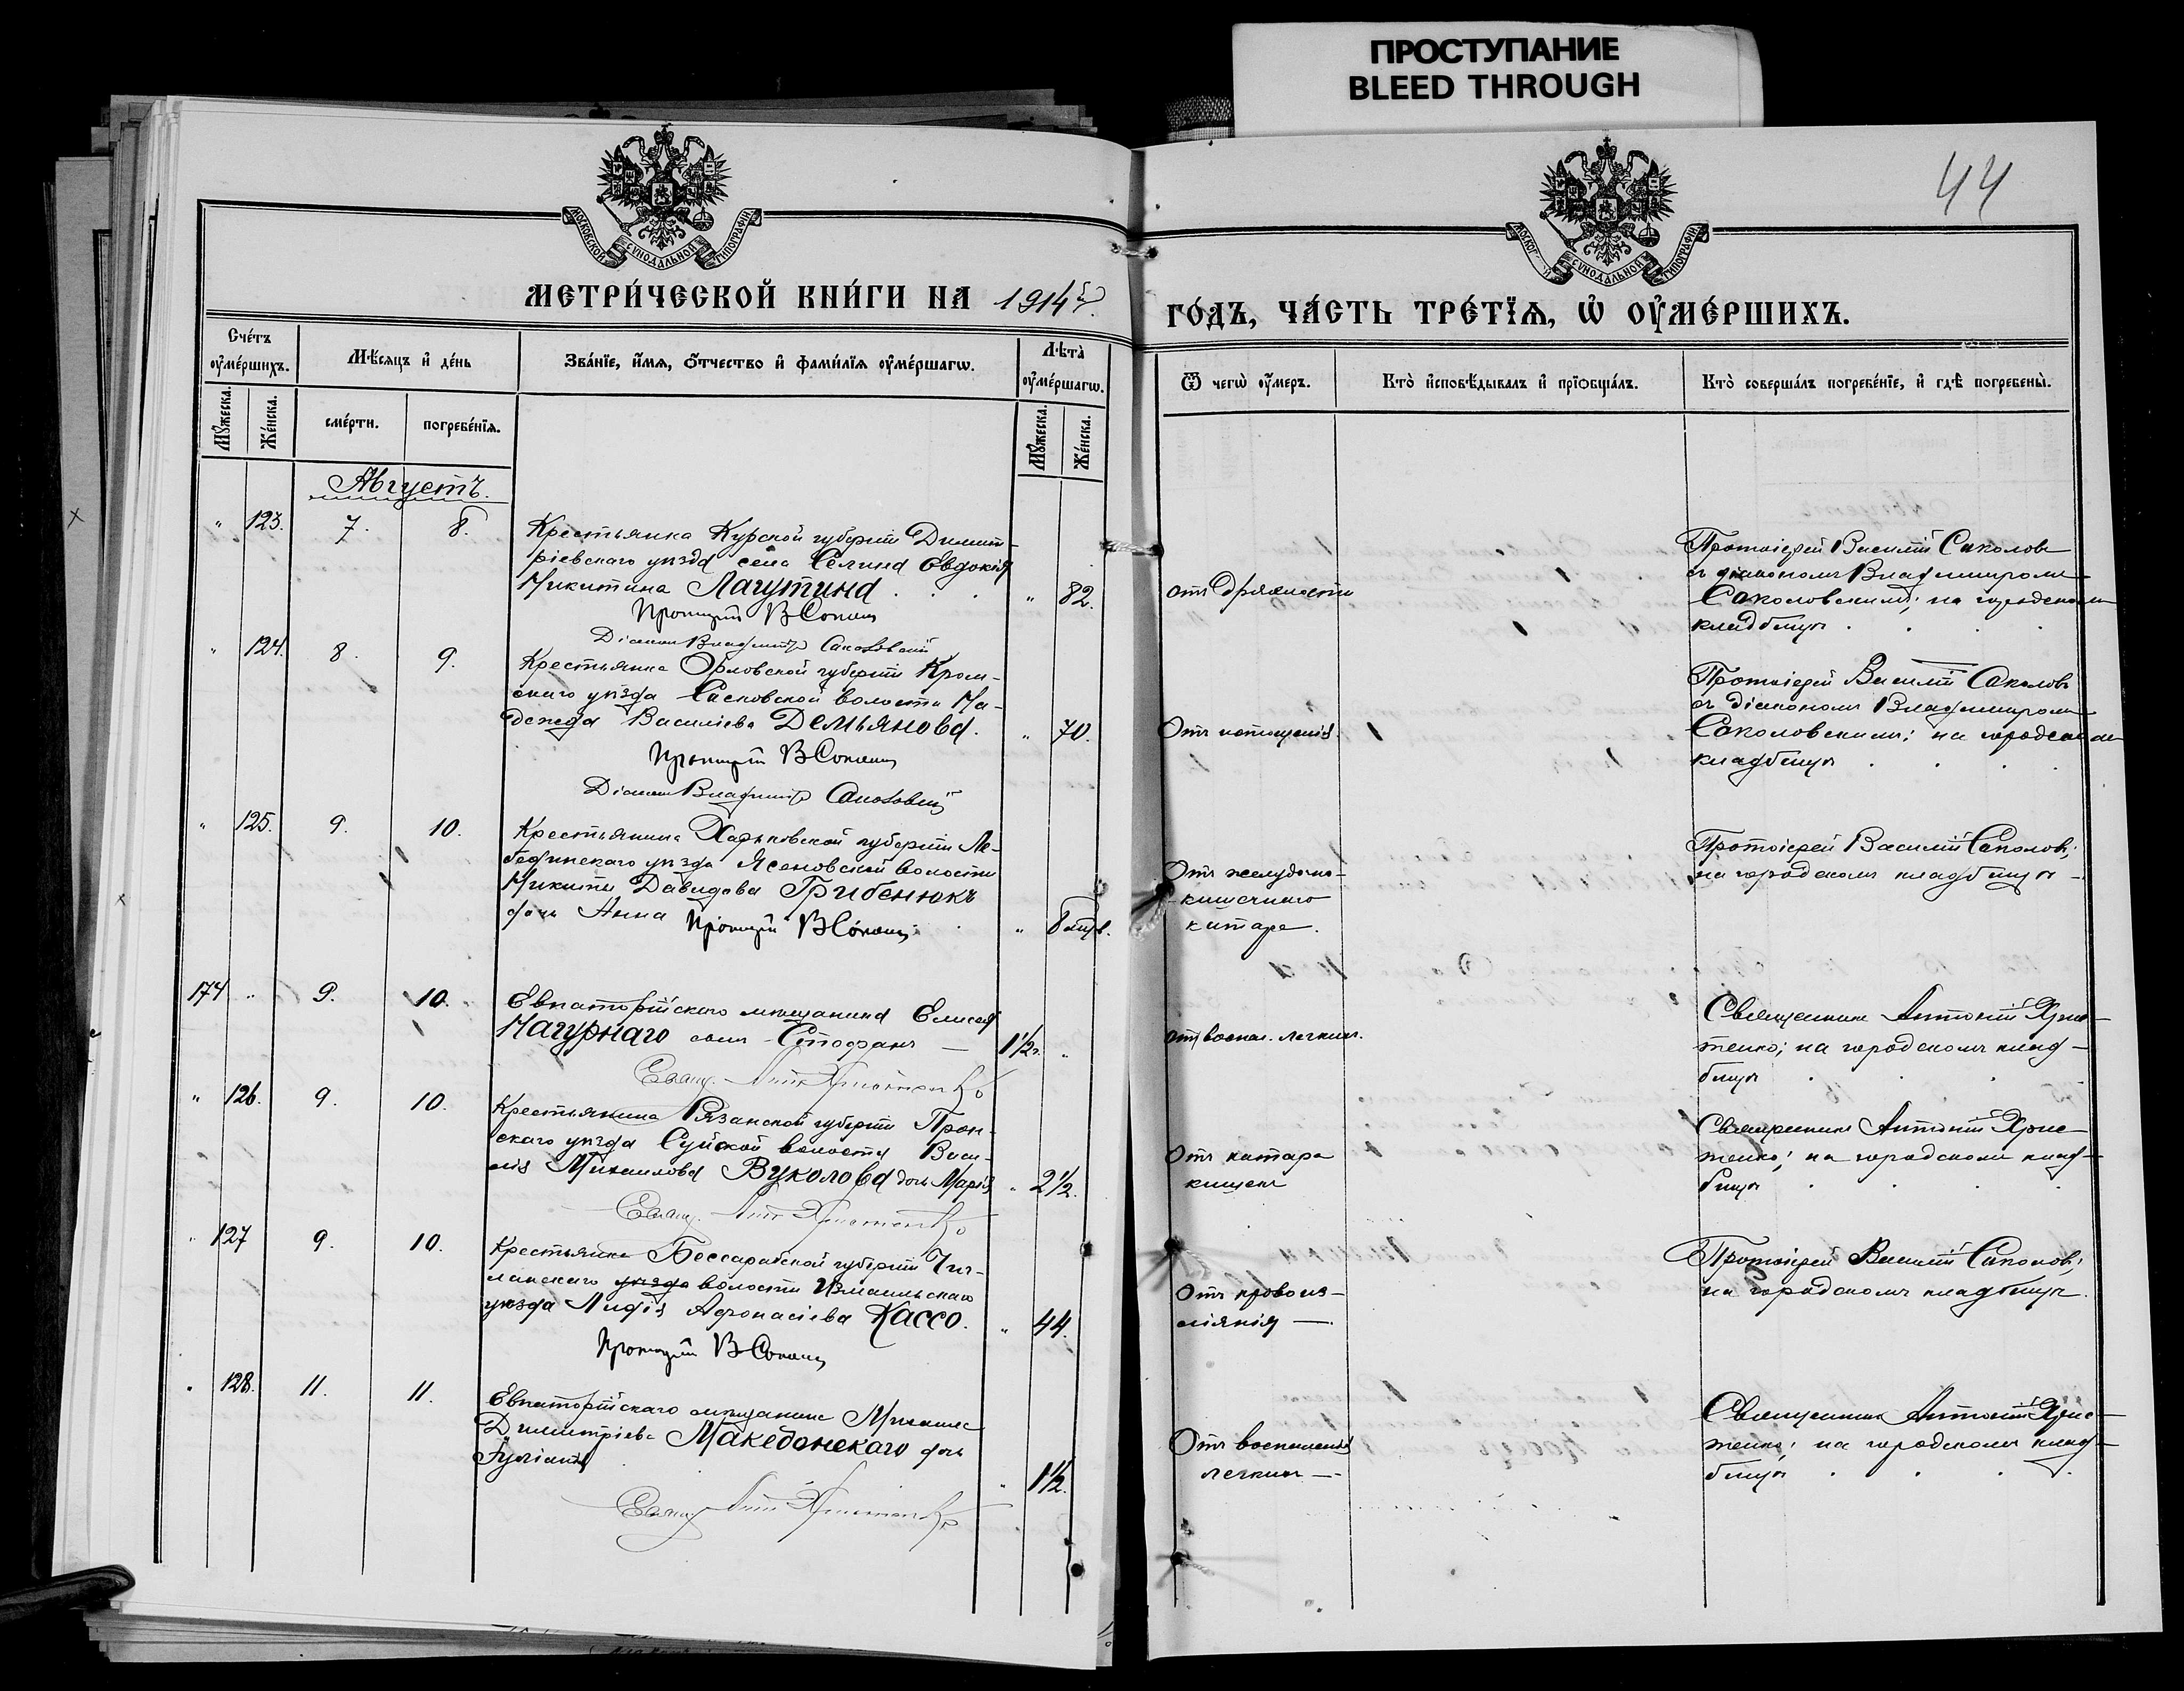 ПРОСТУПАНИЕ
BLEED THROUGH
44
МОСКОВСКОЙ СѴНОДАЛЬНОЙ ТИПОГРАФІИ
СѴНОДАЛЬНОЙ ТИПОГРАФІИ
МЕТРИ́ЧЕСКОЙ КНИ́ГИ НА 1914
ГО́ДЪ, ЧА́СТЬ ТРЕ́ТЇѦ, Ѡ҆ ОУ҆МЕ́РШИХЪ.
Сче́тъ оу҆ме́ршихъ.
Мѣ́сѧцъ и҆ де́нь
Зва́нїе, и҆́мѧ, ѻ҆́тчество и҆ фами́лїѧ оу҆ме́ршагѡ.
Лѣ́та оу҆ме́ршагѡ.
Ѿ чегѡ̀ оу҆́меръ.
Кто̀ и҆сповѣ́дывалъ и҆ прїѡбща́лъ.
Кто̀ соверша́лъ погребе́нїе, и҆ гдѣ̀ погребены̀.
Мꙋ́жеска.
Же́нска.
сме́рти.
погребе́нїѧ.
Мꙋ́жеска.
Же́нска.
Августъ.
" 123. 7. 8.
Крестьянка Курской губерніи Димит-
ріевскаго уѣзда села Селина Евдокія
Никитина Лагутина . . . " 82.
Протоіерей В Соколовъ
Діаконъ Владимиръ Саколовскій
отъ дряхлости
Протоіерей Василій Саколовъ
съ діакономъ Владимиромъ
Саколовскимъ; на городскомъ
кладбищѣ . . .
" 124. 8. 9.
Крестьянка Орловской губерніи Кром-
скаго уѣзда Сасковской волости На-
дежда Василіева Демьянова. " 70.
Протоіерей В Соколовъ
Діаконъ Владимиръ Саколовскій
Отъ истощенія.
Протоіерей Василій Саколовъ
съ діакономъ Владимиромъ
Саколовскимъ; на городскомъ
кладбищѣ . . .
" 125. 9. 10.
Крестьянина Харьковской губерніи Ле-
бединскаго уѣзда Ясеновской волости
Никиты Давидова Грибенюкъ
дочь Анна " 8 мѣс.
Протоіерей В Соколовъ
Отъ желудочно-
-кишечнаго
катара.
Протоіерей Василій Саколовъ;
на городскомъ кладбищѣ -
174 " 9. 10.
Евпаторійскаго мѣщанина Елисея
Нагурнаго сынъ Стефанъ — 1½ г. "
Свящ. Антоній Христенко
отъ воспал. легкихъ.
Священникъ Антоній Хрис-
тенко; на городскомъ клад-
бищѣ . . .
" 126. 9. 10.
Крестьянина Рязанской губерніи Прон-
скаго уѣзда Суйской волости Васи-
лія Михаилова Вуколова дочь Марія " 2½.
Свящ. Антоній Христенко
Отъ катара
кишекъ
Священникъ Антоній Хрис-
тенко; на городскомъ клад-
бищѣ . . .
" 127 9. 10.
Крестьянка Бессарабской губерніи
волости Измаильскаго
уѣзда Лидія Афонасіева Кассо. " 44.
Протоіерей В Соколовъ
Отъ кровоиз-
ліянія —.
Протоіерей Василій Саколовъ;
на городскомъ кладбищѣ.
" 128. 11. 11.
Евпаторійскаго мѣщанина Михаила
Димитріева Македонскаго дочь
Іуліанія " 1½.
Свящ. Антоній Христенко
Отъ воспаленія
легкихъ —.
Священникъ Антоній Хрис-
тенко; на городскомъ клад-
бищѣ . . .